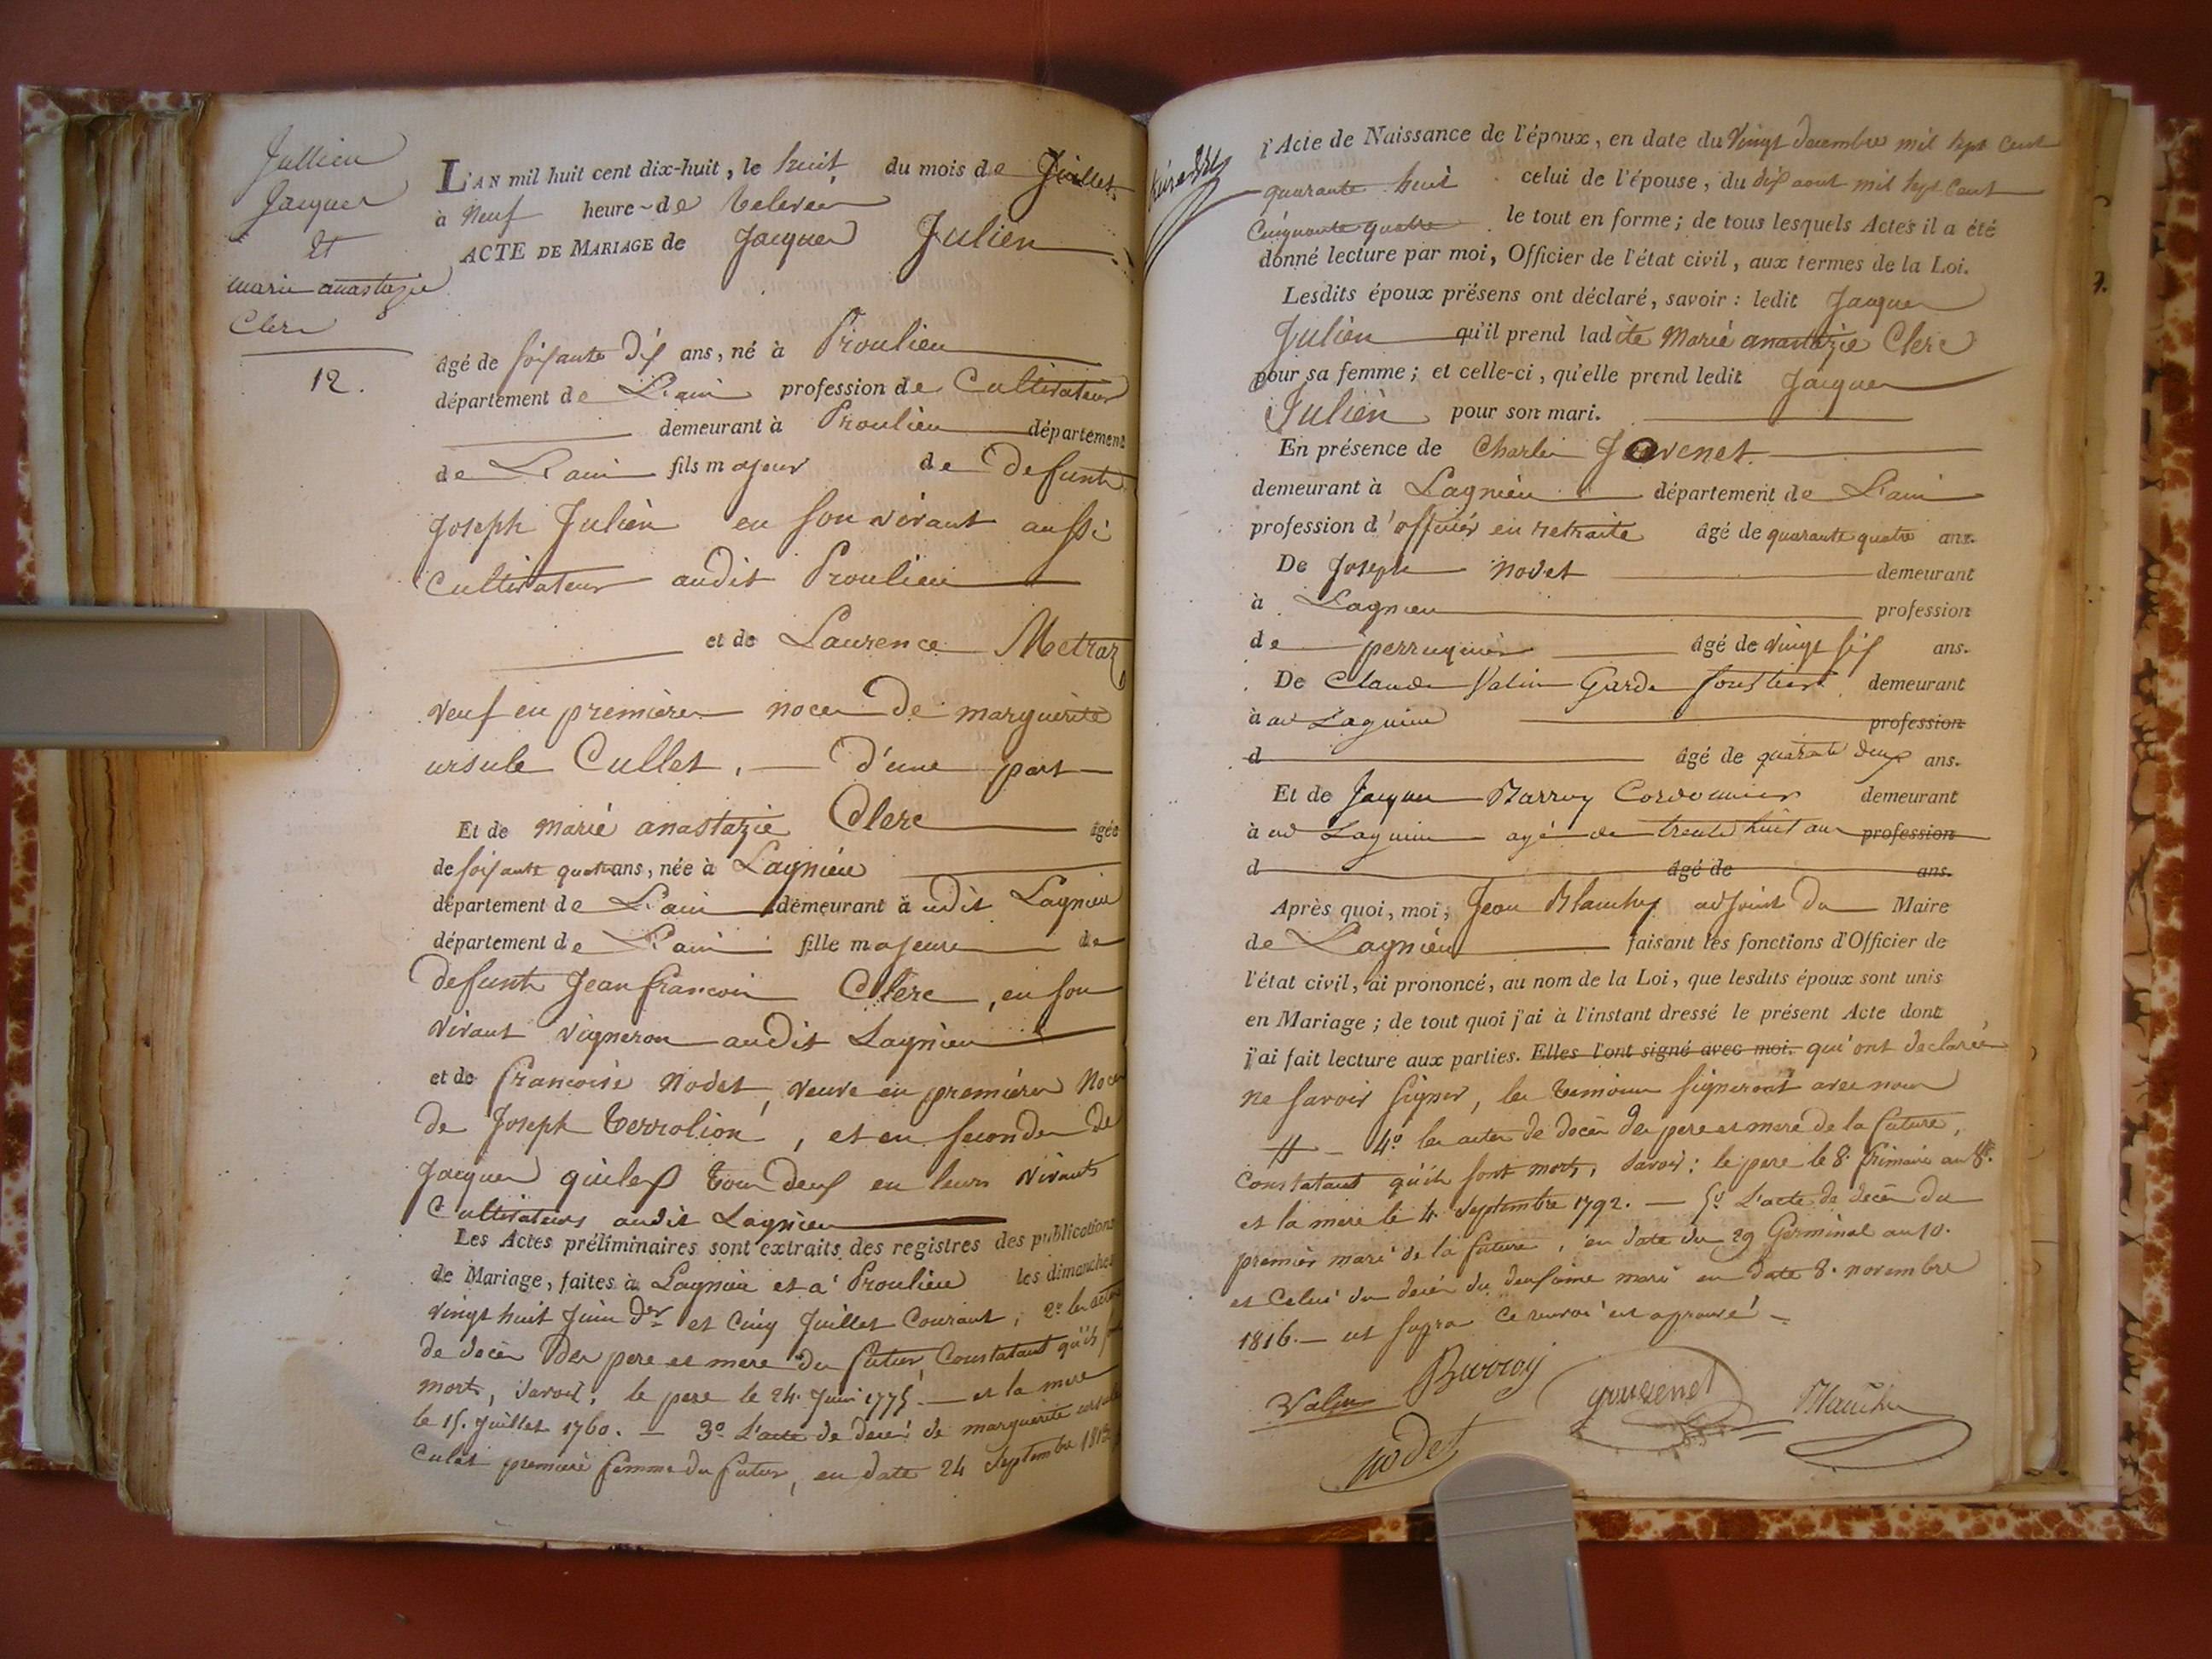 Jullien
Jacques
et
marie anastazie
Clerc
12.
L'AN mil huit cent dix-huit, le huit du mois de Juillet
à neuf heure-de Relevée
ACTE DE MARIAGE de Jacques Julien
âgé de soixante dix ans, né à Proulieu
département de L'ain profession de Cultivateur
demeurant à Proulieu département
de L'ain fils majeur de defunts
Joseph Julien en son vivant aussi
Cultivateur audit Proulieu
et de Laurence Metraz
veuf en premieres noces de marguerite
ursule Cullet, d'une part
Et de marie anastazie Clerc âgée
de soixante quatre ans, née à Lagnieu
département de L'ain demeurant à udit Lagnieu
département de L'ain fille majeure de
defunts Jean francois Clerc, en son
vivant vigneron audit Lagnieu
et de francoise Nodet, veuve en premieres Noces
de Joseph Terrolion, et en secondes de
Jacques quiles tous deux en leurs vivants
Cultivateurs audit Lagnieu
Les Actes préliminaires sont extraits des registres des publications
de Mariage, faites à Lagnieu et a Proulieu les dimanches
vingt huit Juin der et Cinq Juillet Courant, 2º les actes
de décès des pere et mere du futur, Constatant qu'ils
morts, savoir, le pere le 24. Juin 1775. et la mere
le 15. Juillet 1760. — 3º L'acte de décès de marguerite ursule
Culet premiere femme du futur, en date 24 septembre
l'Acte de Naissance de l'époux, en date du vingt decembre mil sept cent
quarante huit celui de l'épouse, du dix aout mil sept cent
Cinquante quatre le tout en forme; de tous lesquels Actes il a été
donné lecture par moi, Officier de l'état civil, aux termes de la Loi.
Lesdits époux présens ont déclaré, savoir: ledit Jacques
Julien qu'il prend ladite Marie anastazie Clerc
pour sa femme; et celle-ci, qu'elle prend ledit Jacques
Julien pour son mari.
En présence de Charles Jovenet
demeurant à Lagnieu département de L'ain
profession d'officier en retraite âgé de quarante quatre ans.
De Joseph Nodet demeurant
à Lagnieu profession
de perruquier âgé de vingt six ans.
De Claude Valin Garde forestier demeurant
à ud Lagnieu profession
d âgé de quarante deux ans.
Et de Jacques Barroy Cordonnier demeurant
à ud Lagnieu agé de trente huit ans profession
d âgé de ans.
Après quoi, moi, Jean Blanchy adjoint du Maire
de Lagnieu faisant les fonctions d'Officier de
l'état civil, ai prononcé, au nom de la Loi, que lesdits époux sont unis
en Mariage; de tout quoi j'ai à l'instant dressé le présent Acte dont
j'ai fait lecture aux parties. Elles l'ont signé avec moi. qu'ont declarées
ne savoir signer, les temoins signeront avec nous
4º les actes de décès des pere et mere de la future,
Constatant qu'ils sont morts, savoir: le pere le 8. frimaire an 8.
et la mere le 4. septembre 1792. — 5º L'acte de décès du
premier mari de la future, en date du 29 Germinal an 10.
et celui du décès du deuxieme mari en date 8. novembre
1816. — ut supra ce renvoi est aprouvé —
Valin Barroy
Nodet